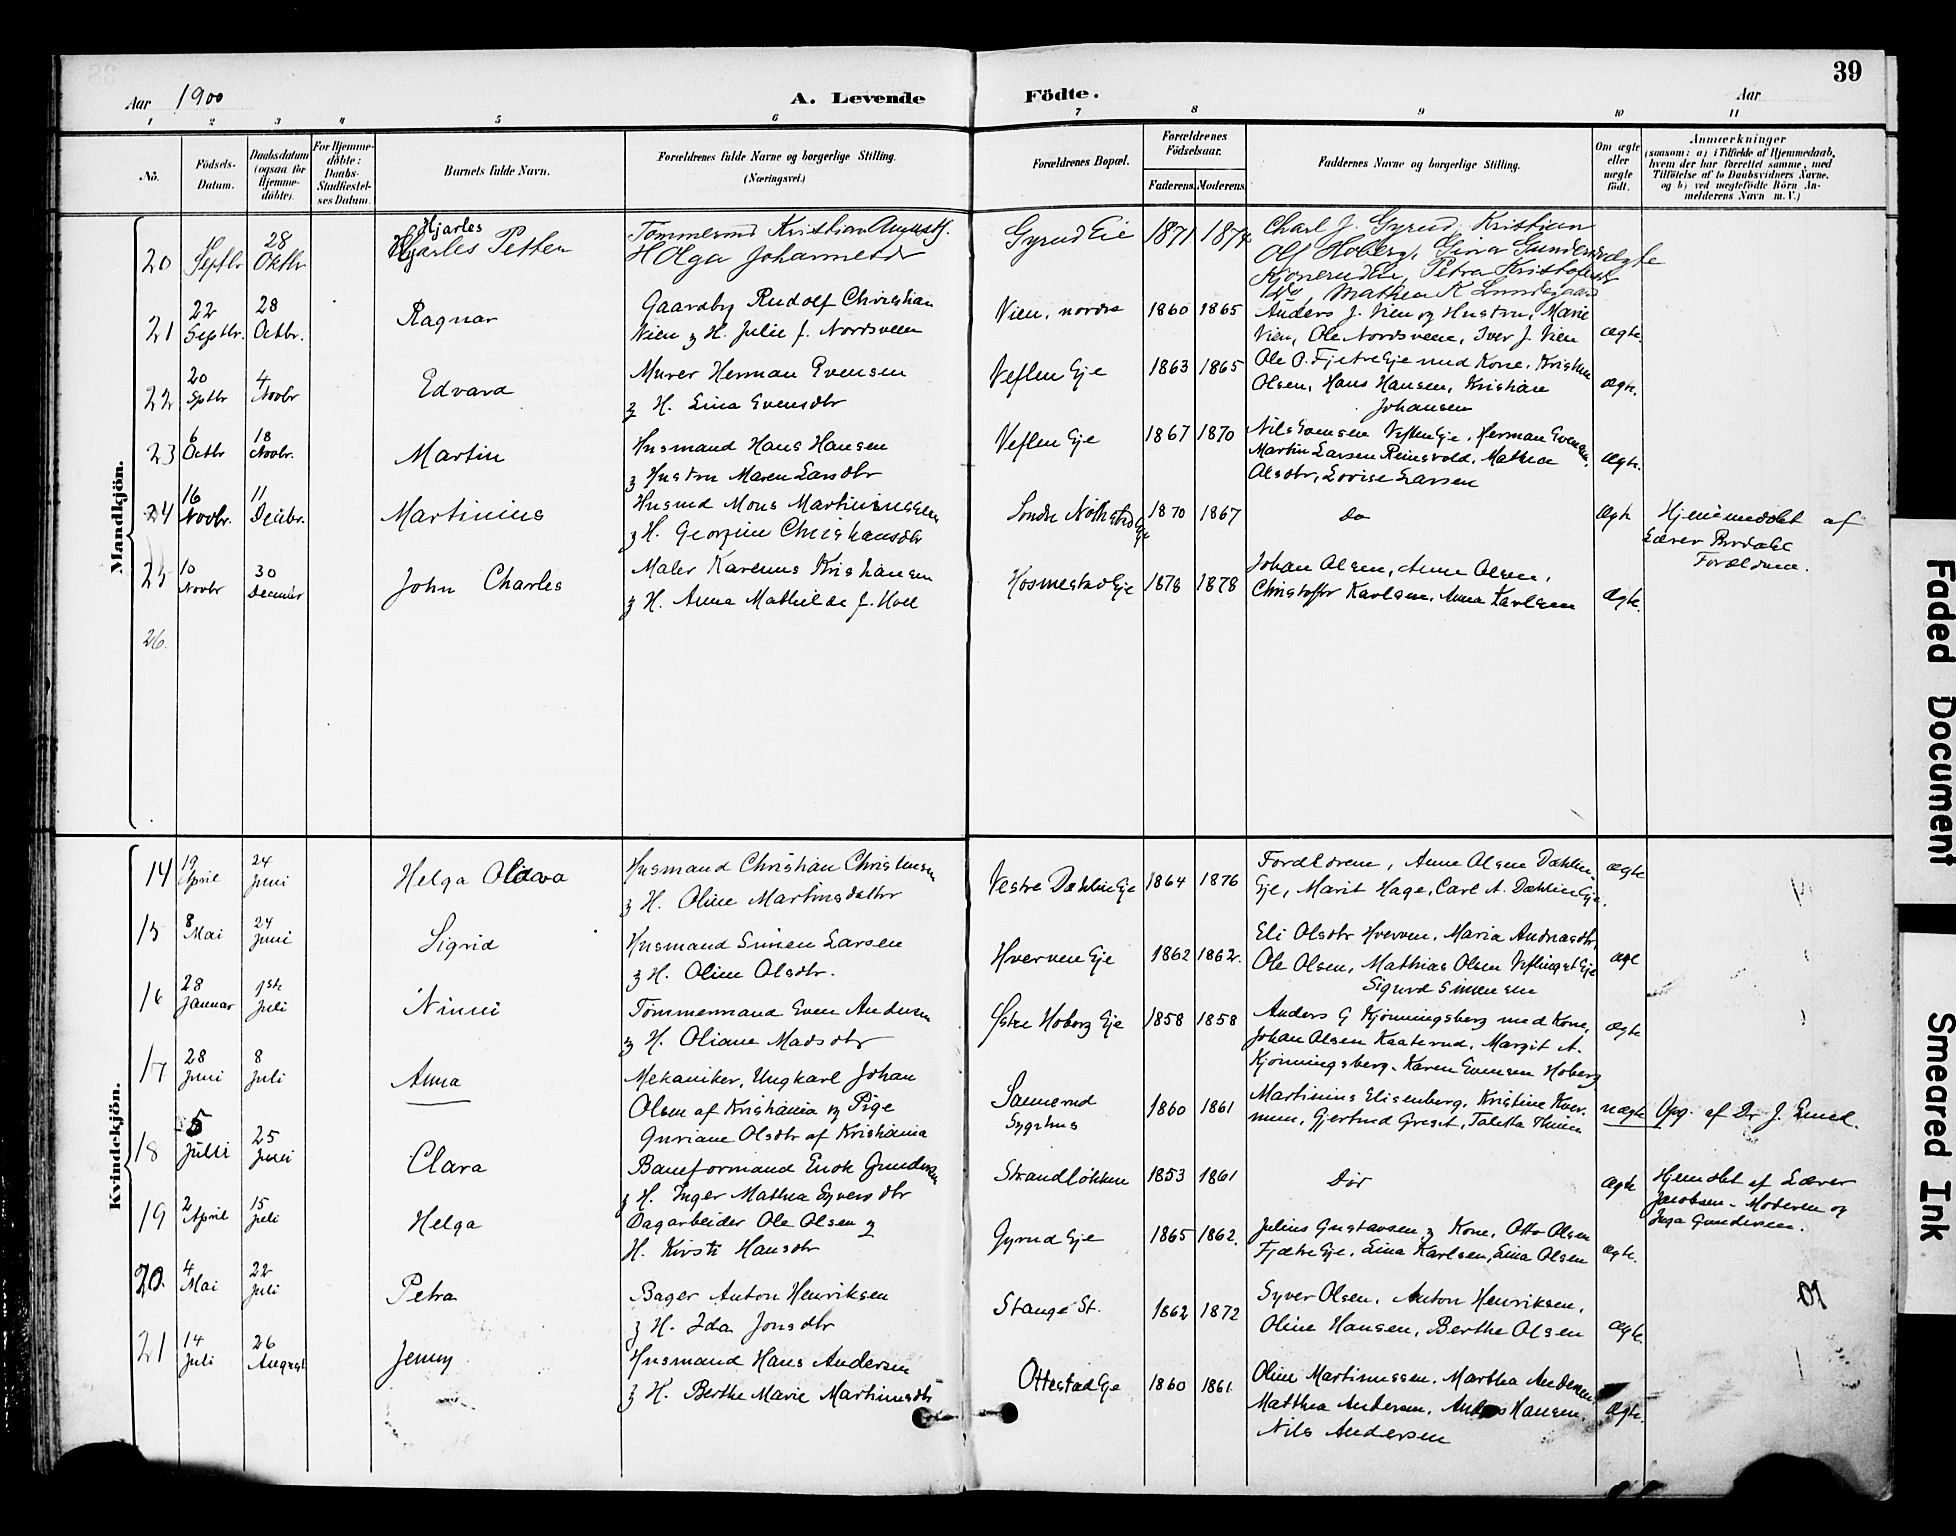 39
Aar 1900 A. Levende Födte. Aar
1 2 3 4 5 6 7 8 9 10 11
No. Födsels-Datum. Daabsdatum (ogsaa for Hjemme-döbte). For Hjemme-döbte: Daabs-Stadfæstel-ses Datum. Barnets fulde Navn. Forældrenes fulde Navne og borgerlige Stilling. (Næringsvei.) Forældrenes Bopæl. Forældrenes Födselsaar. Faderens. Moderens. Faddernes Navne og borgerlige Stilling. Om ægte eller uægte födt. Anmærkninger (saasom: a) i Tilfælde af Hjemmedaab, hvem der har forrettet samme, med Tilföielse af to Daabsvidners Navne. og b) ved uægtefödte Börn An-melderens Navn m. V.)
Mandkjön.
Hjarles
20 Septbr 28 Oktbr Hjarles Petter Tömmermd Kristian August
H Olga Johannesdr Gyrud Eie 1871 1874 Charl J. Gyrud, Kristian
Olf Hoberg, Gina Gunders ægte
Petra
Mathea K Lundsgaard
21 22 Septbr. 28 Octbr. Ragnar Gaardbg Rudolf Christian
Vien & H. Julie f. Nordsveen Vien, nordre 1860 1865 Anders J. Vien og Hustru, Marie
Vien, Ole Nordsveen, Iver J. Vien ægte.
22 20 Sptbr 4 Novbr Edvard Murer Herman Evensen
& H. Lina Evensdtr Veflen Eje 1863 1865 Ole O. Fjetre Eje med Kone, Kristian
Olsen, Hans Hansen, Kristian ægte.
Johansen
23 6 Octbr 18 Novbr. Martin Husmand Hans Hansen
& Hustru Maren Larsdtr Veflen Eje 1867 1870 Nils Evensen Veflen Eje, Herman Evensen,
Martin Larsen Reinsvold, Mathea ægte.
Olsdtr, Lovise Larsen
24 16 Novbr. 11 Decbr. Martinius Husmd Mons Martiniussen
& H. Georgine Christiansdtr Søndre 1870 1867 Do ægte Hjemmedøbt af
Lærer
Forældrene.
25 10 Novbr 30 December John Charles Maler Karenus Kristiansen
& H. Anna Mathilde f. Hoel Hosmestad Eje 1878 1878 Johan Olsen, Anne Olsen,
Christoffer Karlsen, Anna Karlsen ægte.
26.
Kvindekjön.
14 19 April 24 Juni Helga Oldava Husmand Christian Christensen
& H. Oline Martinsdatter Vestre Dæhlin Eje 1864 1876 Forældrene, Anne Olsen Dæhlen-
Eje, Marit Hage, Carl A. Dæhlin Eje. ægte
15 8 Mai 24 Juni Sigrid Husmand Simen Larsen
& H. Oline Olsdtr. Hverven Eje 1862 1862. Eli Olsdtr Hverven, Maria Andreasdtr,
Ole Olsen, Mathias Olsen Veflingst Eje ægte
Sigurd Simensen
16 28 Januar 1ste Juli Ninni Tömmermand Even Andersen
& H. Oliane Madsdtr Østre Hoberg Eje 1858 1858 Anders G Kjønningsberg med Kone,
Johan Olsen Kaaterud, Margit A. ægte
Kjönningsberg. Karen Evensen Hoberg
17 28 Juni 8 Juli Anna Mekaniker, Ungkarl Johan
Olsen af Kristiania og Pige
Guriane Olsdtr af Kristiania Sannerud
Sygehus 1860 1861 Martinius Elisenberg, Kristine Kver-
nmen, Gjertrud Greset, Taletta Thuen uægte Opg. af Dr J. Lund.
18 5 Juli 25 Juni Clara Baneformand Enok Gundersen
& H. Inger Mathea Syversdtr Strandløkken 1853 1861 Do ægte Hjemdbt af Lærer
Jacobsen - Moderen og
Inga Gundersen.
19 2 April 15 Juli Helga Dagarbeider Ole Olsen &
H. Kirsti Hansdtr Gyrud Eje 1865 1862. Julius Gustavsen & Kone, Otto Olsen
Fjætre Eje, Lina Karlsen, Lina Olsen ægte.
20. 4 Mai 22 Juli Petra Bager Anton Henriksen
& H. Ida Jonsdtr Stange St. 1862 1872 Syver Olsen, Anton Henriksen,
Oline Hansen, Berthe Olsen ægte.
21 14 Juli 26 August Jenny Husmand Hans Andersen
& H. Berthe Marie Martinusdtr Ottestad Eje 1860 1861 Oline Martinussen, Martha Andersen
Matthea Andersen, Anders Hansen, ægte.
Nils Andersen
Faded Document
Smeared Ink